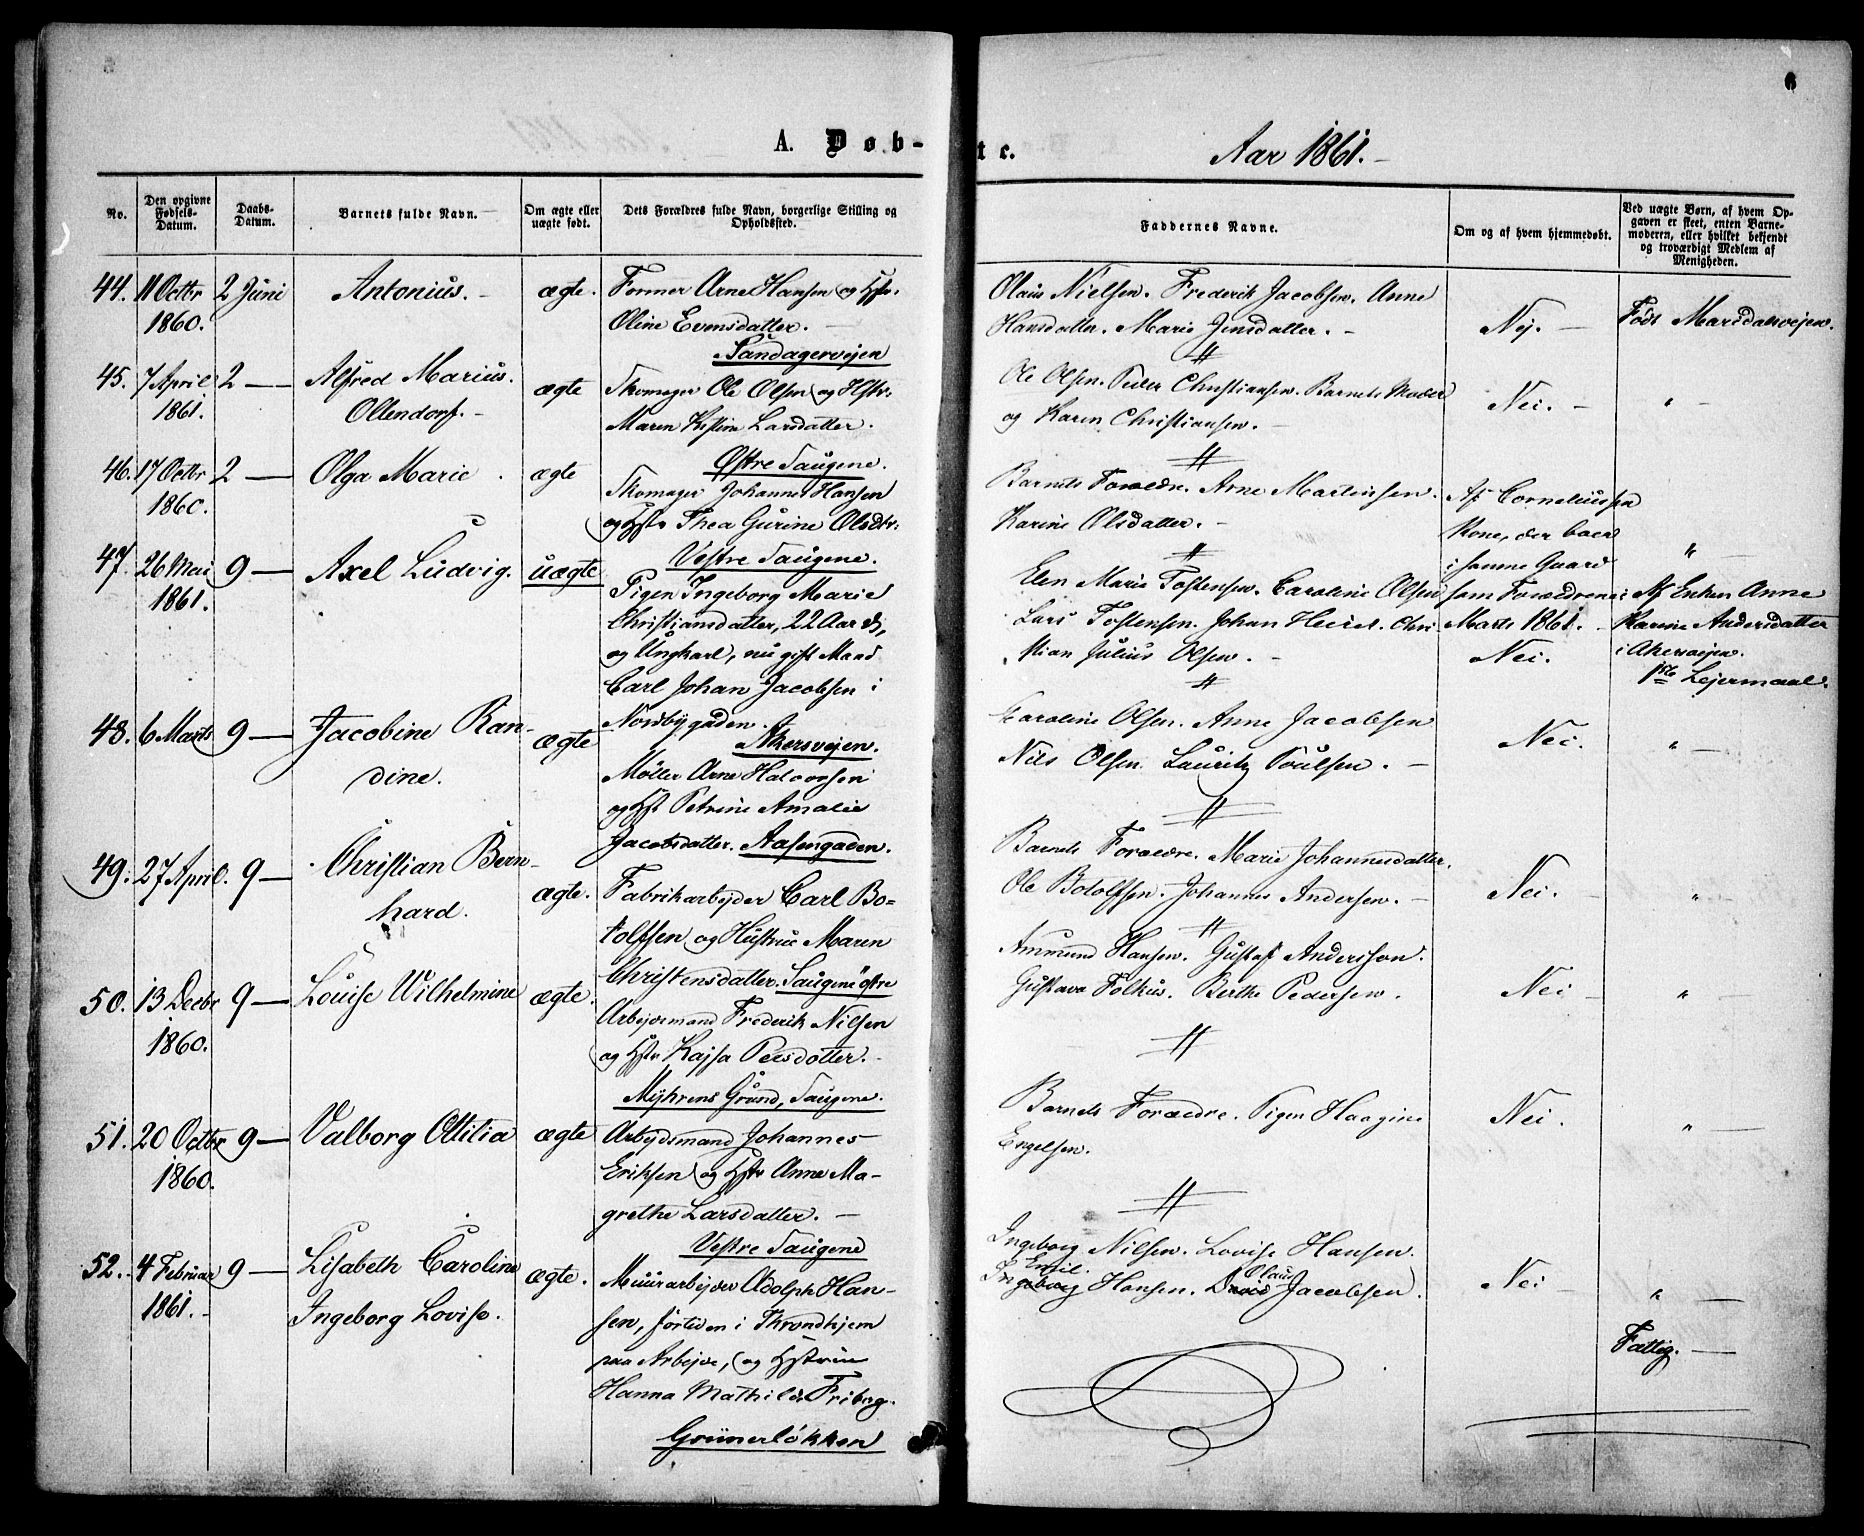 6
A. Døb-
te.
Aar 1861.
No.
Den opgivne Fødsels-Datum.
Daabs-Datum.
Barnets fulde Navn.
Om ægte eller uægte født.
Dets Forældres fulde Navn, borgerlige Stilling og Opholdssted.
Faddernes Navne.
Om og af hvem hjemmedøbt.
Ved uægte Børn, af hvem Op-
gaven er skeet, enten Barne-
moderen, eller hvilket bekjendt
og troværdigt Medlem af
Menigheden.
44. 11 Octbr 1860. 2 Juni
Antonius.
ægte.
Former Arne Hansen og Hstr.
Oline Evensdatter.
Sandagerveien
Olaus Nielsen. Frederik Jacobsen. Anne
Hansdatter. Marie Jensdatter.
Nej.
Født Maridalsvejen.
45. 7 April 1861. 2
Alfred Marius.
Ollendorf.
ægte
Skomager Ole Olsen og Hstr.
Maren Kistine Larsdatter.
Østre Saugene.
Ole Olsen. Peder Christiansen. Barnets Moder
og Karen Christiansen.
Nei.
"
46. 17 Octbr 1860. 2
Olga Marie
ægte
Skomager Johannes Hansen
og Hstr Thea Gurine Olsdtr.
Vestre Saugene.
Barnets Forældre. Arne Martinsen.
Karine Olsdatter.
Af Corneliussen
Kone, der boer
i samme Gaard
som Forældrene i
Marts 1861.
"
47. 26 Mai 1861. 9
Axel Ludvig.
uægte
Pigen Ingeborg Marie
Christiansdatter, 22 Aar
og Ungkarl, nu gift Mand
Carl Johan Jacobsen i
Nordbygaden.
Akersvejen.
Elen Marie Tostensen. Caroline Olsen
Lars Tostensen. Johan Chri-
stian Julius Olsen.
Nei.
Af Enken Anne
Karine Andersdatter
i Akersvejen.
1ste Lejermaal.
48. 6 Marts 9
Jacobine Ran-
dine.
ægte
Møller Arne Halvorsen
og Hst Petrine Amalie
Jacobsdatter. Aasengaden.
Karoline Olsen. Anne Jacobsen
Nils Olsen. Lauritz Poulsen.
Nei.
"
49. 27 April. 9
Christian Bern-
hard.
ægte.
Fabrikarbejder Carl Bo-
tolfsen og Hustrue Maren
Christensdatter. Saugene østre
Barnets Forældre. Marie Johannesdatter.
Ole Botolfsen. Johannes Andersen.
Nei.
"
50. 13 Decbr 1860. 9
Louise Wilhelmine
ægte.
Arbejdsmand Frederik Nilsen
og Hstr Kajsa Persdotter.
Myhrens Grund, Saugene.
Amund Hansen. Gustaf Andersson.
Gustava Folkus. Berthe Pedersen.
Nei
"
51. 20 Octbr 1860. 9
Valborg Ottilia
ægte
Arbejdsmand Johannes
Eriksen og Hstr Anne Ma-
grethe Larsdatter.
Vestre Saugene
Barnets Forældre. Pigen Haagine
Engelsen.
Nei.
"
52. 4 Februar 1861. 9
Lisabeth Caroline
Ingeborg Lovise.
ægte.
Muurarbejder Adolph Han-
sen, fortiden i Throndhjem
paa Arbejde, og Hstrue
Hanna Mathilde Friberg.
Grünerløkken
Ingeborg Nilsen. Lovise Hansen.
Emil
Ingeborg Hansen. David Olaus Jacobsen.
Nei
"
Fattig.